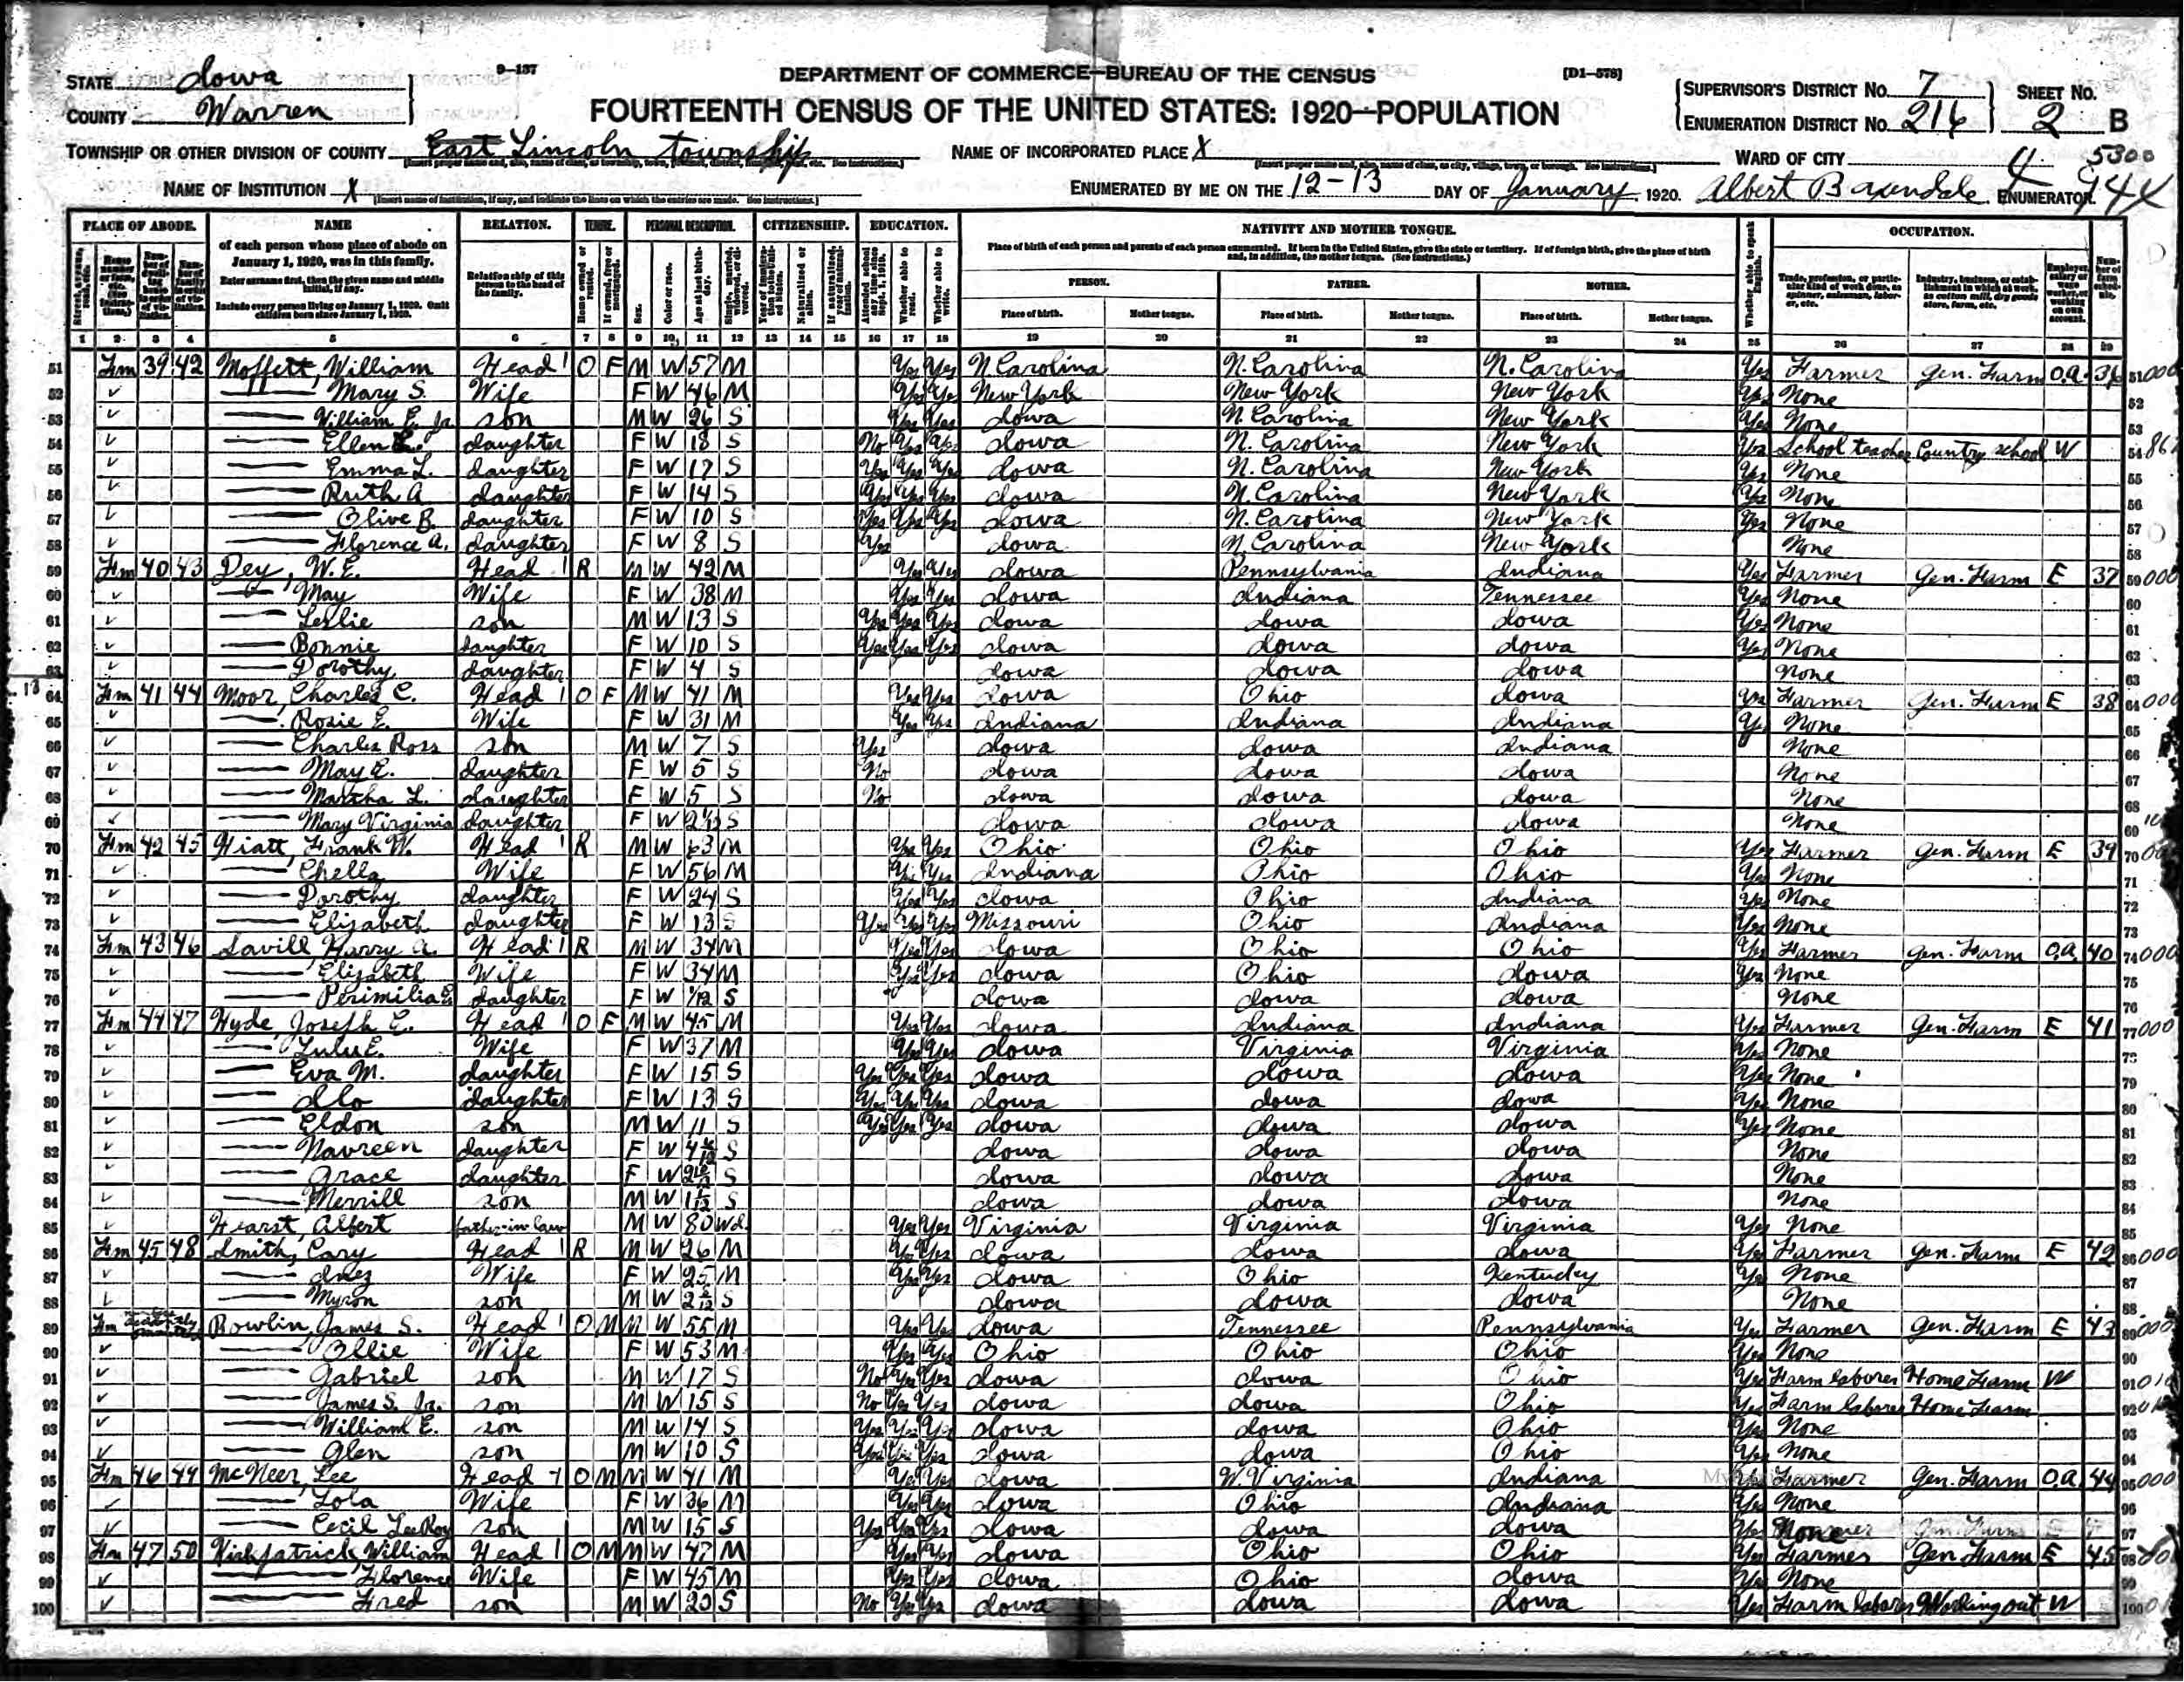 9–137 DEPARTMENT OF COMMERCE—BUREAU OF THE CENSUS [D1—578]
STATE Iowa
COUNTY Warren
FOURTEENTH CENSUS OF THE UNITED STATES: 1920—POPULATION
SUPERVISOR'S DISTRICT No. 7 SHEET No.
ENUMERATION DISTRICT No. 216 2 B
TOWNSHIP OR OTHER DIVISION OF COUNTY East Lincoln township NAME OF INCORPORATED PLACE X WARD OF CITY 5300
NAME OF INSTITUTION X ENUMERATED BY ME ON THE 12-13 DAY OF January, 1920. Albert Baxendale, ENUMERATOR.
PLACE OF ABODE. NAME RELATION. TENURE. PERSONAL DESCRIPTION. CITIZENSHIP. EDUCATION. NATIVITY AND MOTHER TONGUE. OCCUPATION.
of each person whose place of abode on January 1, 1920, was in this family.
Enter surname first, then the given name and middle initial, if any.
Include every person living on January 1, 1920. Omit children born since January 1, 1920.
Relationship of this person to the head of the family.
Place of birth of each person and parents of each person enumerated. If born in the United States, give the state or territory. If of foreign birth, give the place of birth and, in addition, the mother tongue. (See instructions.)
PERSON. FATHER. MOTHER.
Place of birth. Mother tongue. Place of birth. Mother tongue. Place of birth. Mother tongue.
1 2 3 4 5 6 7 8 9 10 11 12 13 14 15 16 17 18 19 20 21 22 23 24 25 26 27 28 29
51 Fm 39 42 Moffett, William Head 1 O F M W 57 M Yes Yes N. Carolina N. Carolina N. Carolina Yes Farmer Gen. Farm O.A. 36 51
52 Mary S. Wife F W 46 M Yes Yes New York New York New York Yes None 52
53 William E. Jr son M W 26 S Yes Yes Iowa N. Carolina New York Yes None 53
54 Ellen daughter F W 18 S No Yes Yes Iowa N. Carolina New York Yes School teacher Country school W 54
55 Emma L. daughter F W 17 S Yes Yes Yes Iowa N. Carolina New York Yes None 55
56 Ruth A daughter F W 14 S Yes Yes Yes Iowa N. Carolina New York Yes None 56
57 Olive B. daughter F W 10 S Yes Yes Yes Iowa N. Carolina New York Yes None 57
58 Florence A. daughter F W 8 S Yes Iowa N. Carolina New York None 58
59 Fm 40 43 Dey, W. E. Head 1 R M W 42 M Yes Yes Iowa Pennsylvania Indiana Yes Farmer Gen. Farm E 37 59
60 May Wife F W 38 M Yes Yes Iowa Indiana Tennessee Yes None 60
61 Leslie son M W 13 S Yes Yes Yes Iowa Iowa Iowa Yes None 61
62 Bonnie daughter F W 10 S Yes Yes Yes Iowa Iowa Iowa Yes None 62
63 Dorothy daughter F W 4 S Iowa Iowa Iowa None 63
64 Fm 41 44 Moor, Charles C. Head 1 O F M W 41 M Yes Yes Iowa Ohio Iowa Yes Farmer Gen. Farm E 38 64
65 Rosie E. Wife F W 31 M Yes Yes Indiana Indiana Indiana Yes None 65
66 Charles Ross son M W 7 S Yes Iowa Iowa Indiana None 66
67 May E. daughter F W 5 S No Iowa Iowa Iowa None 67
68 Martha L. daughter F W 5 S No Iowa Iowa Iowa None 68
69 Mary Virginia daughter F W S Iowa Iowa Iowa None 69
70 Fm 42 45 Hiatt, Frank W. Head 1 R M W 63 M Yes Yes Ohio Ohio Ohio Yes Farmer Gen. Farm E 39 70
71 Chella Wife F W 56 M Yes Yes Indiana Ohio Ohio Yes None 71
72 Dorothy daughter F W 24 S Yes Yes Iowa Ohio Indiana Yes None 72
73 Elizabeth daughter F W 13 S Yes Yes Yes Missouri Ohio Indiana Yes None 73
74 Fm 43 46 Savill, Harry A. Head 1 R M W 34 M Yes Yes Iowa Ohio Ohio Yes Farmer Gen. Farm O.A. 40 74
75 Elizabeth Wife F W 34 M Yes Yes Iowa Ohio Iowa Yes None 75
76 Perimilia E. daughter F W 1/12 S Iowa Iowa Iowa None 76
77 Fm 44 47 Hyde, Joseph E. Head 1 O F M W 45 M Yes Yes Iowa Indiana Indiana Yes Farmer Gen. Farm E 41 77
78 Lulu E. Wife F W 37 M Yes Yes Iowa Virginia Virginia Yes None 78
79 Eva M. daughter F W 15 S Yes Yes Yes Iowa Iowa Iowa Yes None 79
80 Ilo daughter F W 13 S Yes Yes Yes Iowa Iowa Iowa Yes None 80
81 Eldon son M W 11 S Yes Yes Yes Iowa Iowa Iowa Yes None 81
82 Navreen daughter F W S Iowa Iowa Iowa None 82
83 Grace daughter F W S Iowa Iowa Iowa None 83
84 Merrill son M W S Iowa Iowa Iowa None 84
85 Hearst, Albert father-in-law M W 80 Wd. Yes Yes Virginia Virginia Virginia Yes None 85
86 Fm 45 48 Smith, Cary Head 1 R M W 26 M Yes Yes Iowa Iowa Iowa Yes Farmer Gen. Farm E 42 86
87 Inez Wife F W 25 M Yes Yes Iowa Ohio Kentucky Yes None 87
88 Myron son M W S Iowa Iowa Iowa None 88
89 Fm Rowlin, James S. Head 1 O M M W 55 M Yes Yes Iowa Tennessee Pennsylvania Yes Farmer Gen. Farm E 43 89
90 Ollie Wife F W 53 M Yes Yes Ohio Ohio Ohio Yes None 90
91 Gabriel son M W 17 S No Yes Yes Iowa Iowa Ohio Yes Farm laborer Home Farm W 91
92 James S. Jr. son M W 15 S No Yes Yes Iowa Iowa Ohio Yes Farm laborer Home Farm 92
93 William E. son M W 14 S Yes Yes Yes Iowa Iowa Ohio Yes None 93
94 Glen son M W 10 S Yes Yes Yes Iowa Iowa Ohio Yes None 94
95 Fm 46 49 McNeer, Lee Head 1 O M M W 41 M Yes Yes Iowa W. Virginia Indiana Yes Farmer Gen. Farm O.A. 44 95
96 Lola Wife F W 36 M Yes Yes Iowa Ohio Indiana Yes None 96
97 Cecil LeeRoy son M W 15 S Yes Yes Yes Iowa Iowa Iowa Yes None 97
98 Fm 47 50 Kirkpatrick, William Head 1 O M M W 47 M Yes Yes Iowa Ohio Ohio Yes Farmer Gen Farm E 45 98
99 Florence Wife F W 45 M Yes Yes Iowa Ohio Iowa Yes None 99
100 Fred son M W 20 S No Yes Yes Iowa Iowa Iowa Yes Farm laborer Working out W 100